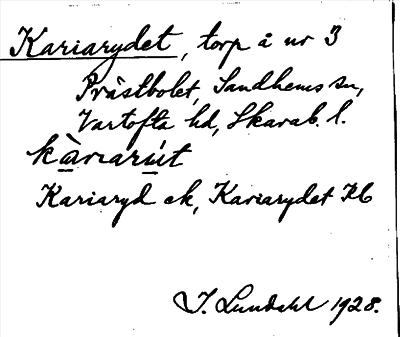 Kariarydet, torp å nr 3
Prästbolet, Sandhems sn,
Vartofta hd, Skarab. l.
kàriarút
Kariaryd ek, Kariarydet Kb
I. Lundahl 1928.